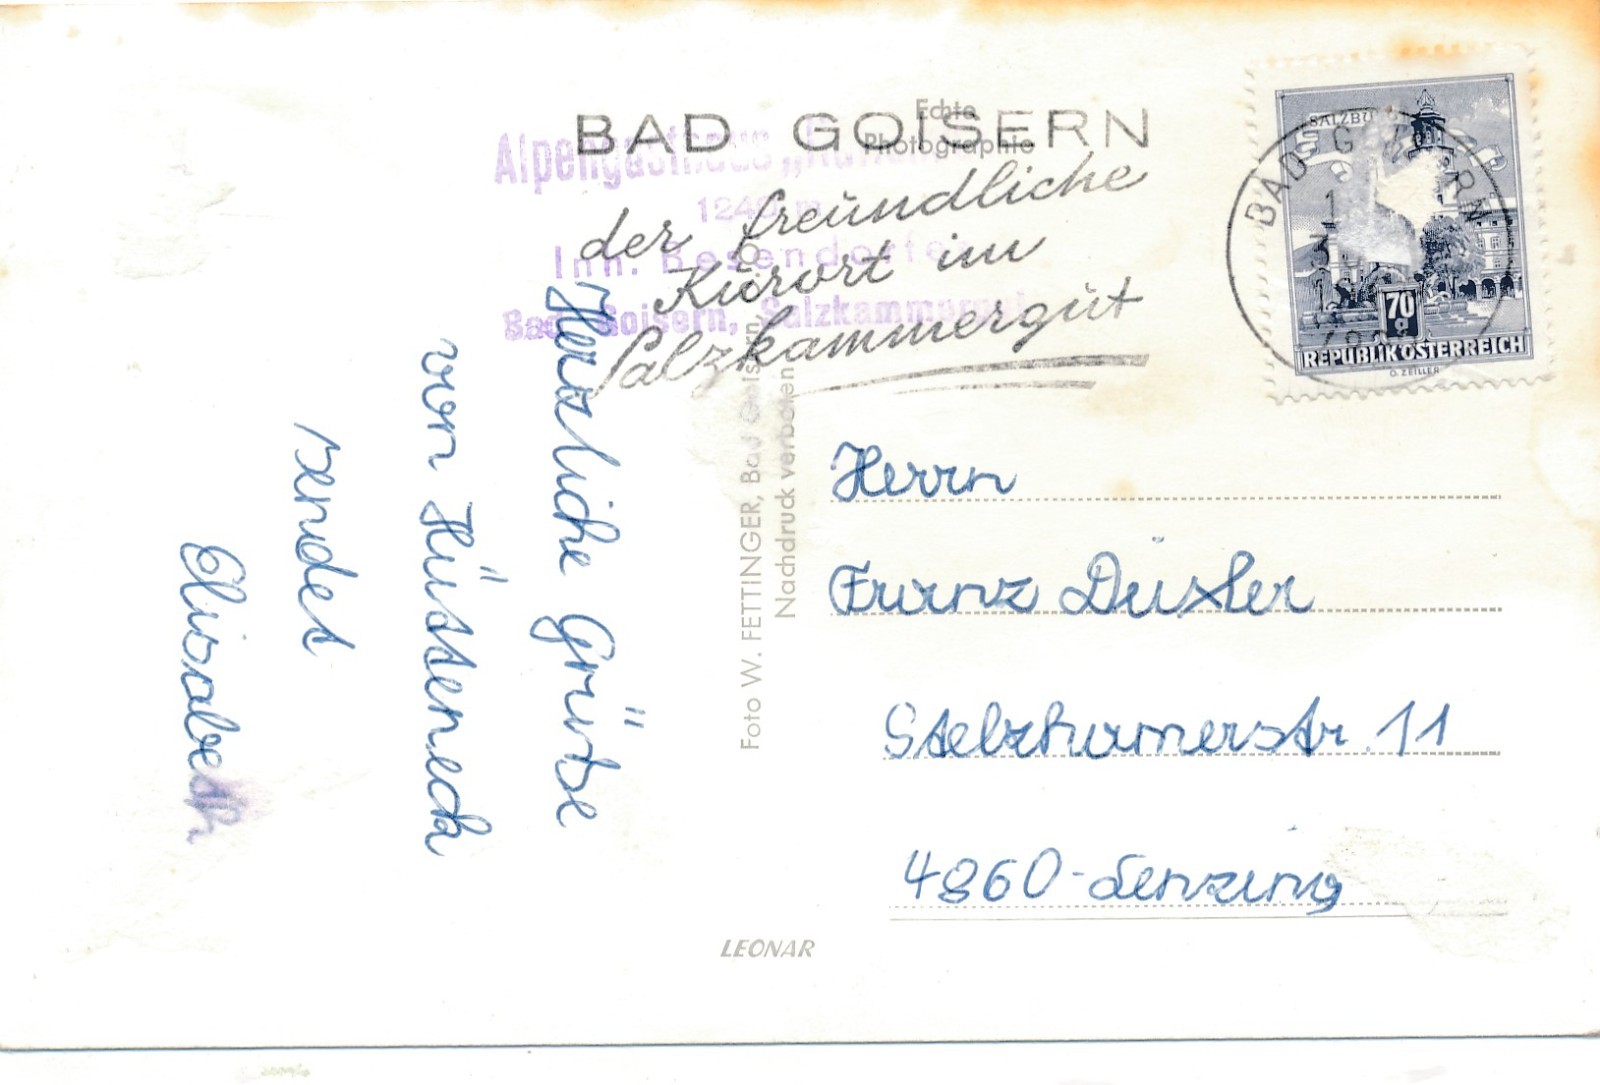 Echte
Photographie
BAD GOISERN
der freundliche
Kurort im
Salzkammergut
Alpengasthaus
Inh. Besendorfer
Bad Goisern, Salzkammergut
SALZBURG
BAD GOISERN
70 g
REPUBLIK ÖSTERREICH
O. ZEILLER
Herzliche Grüße
von Hütteneck
sendet
Elisabeth
Foto W. FETTINGER, Bad Goisern,
Nachdruck verboten
Herrn
Franz
Stelzhamerstr. 11
4860-Lenzing
LEONAR